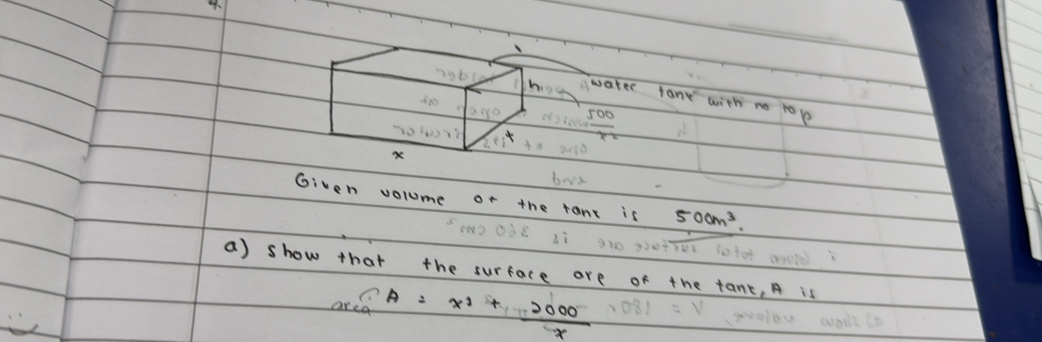 4.
water tank with no top
h
500
x²
x
x
Given volume of the tank is 500m³.
a) show that the surface are of the tank, A is
area
A = x² + 2000
x